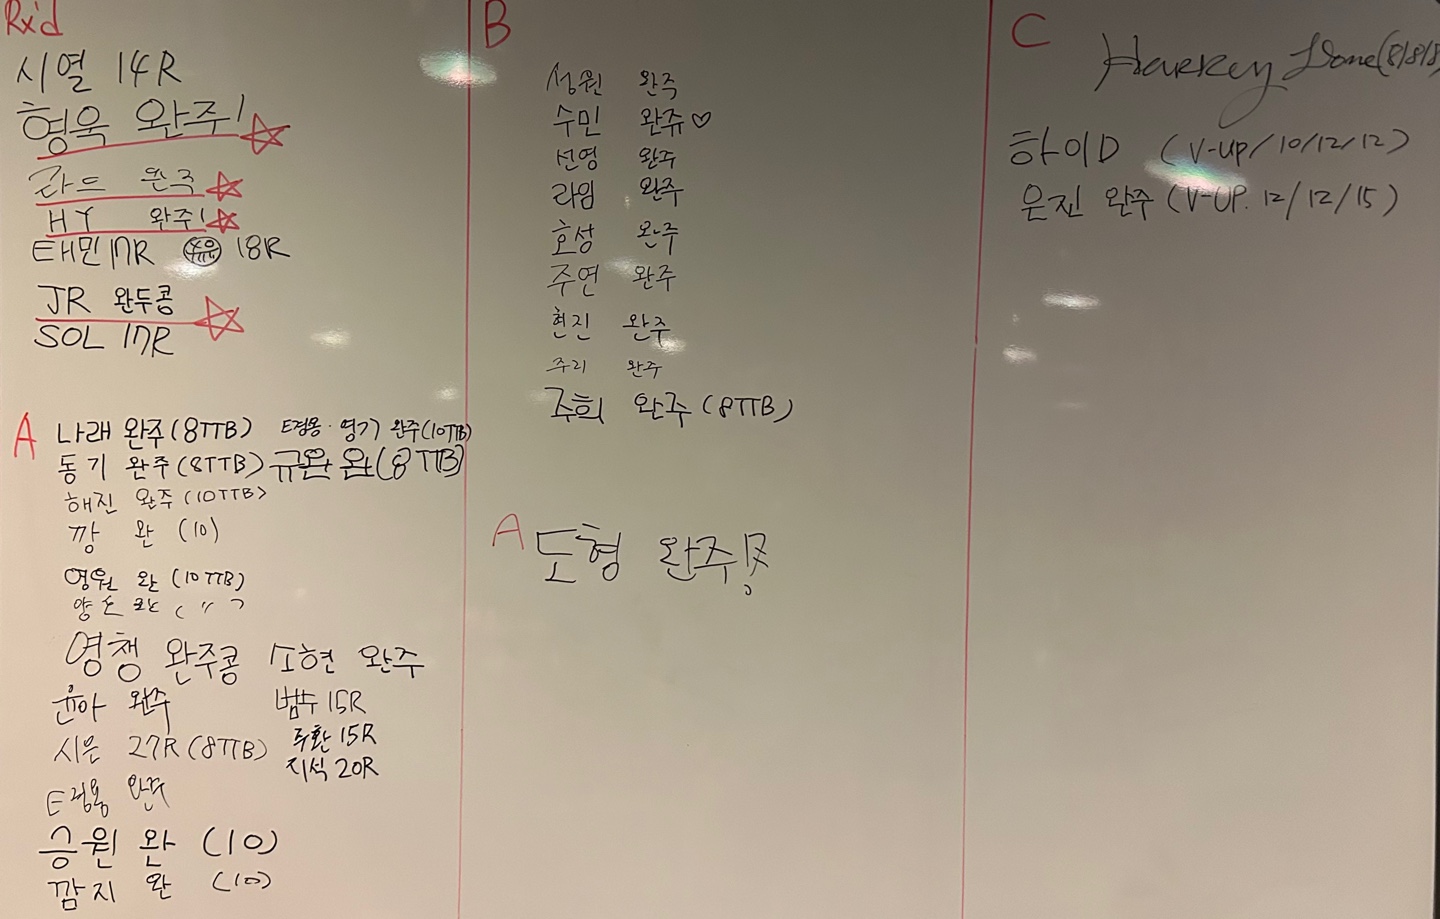 Rx'd
시열 14R
형욱 완주!
라드 완주
HY 완주!
태민 17R 18R
JR 완두콩
SOL 17R
A
나래 완주(8TTB) 영기 완주(10TTB)
동기 완주(8TTB) 규완 완(8TTB)
해진 완주(10TTB)
깡 완 (10)
영원 완 (10TTB)
영챙 완주콩 소현 완주
윤아 완주 범수 15R
시은 27R (8TTB) 주환 15R
지석 20R
완주
승원 완 (10)
깜지 완 (10)
B
성원 완주
수민 완쥬♡
선영 완주
라임 완주
호성 완주
주연 완주
현진 완주
주리 완주
주희 완주 (8TTB)
A
도형 완주
C
Harkey Done(8/8/8)
하이D (V-up/10/12/12)
은진 완주 (V-UP. 12/12/15)